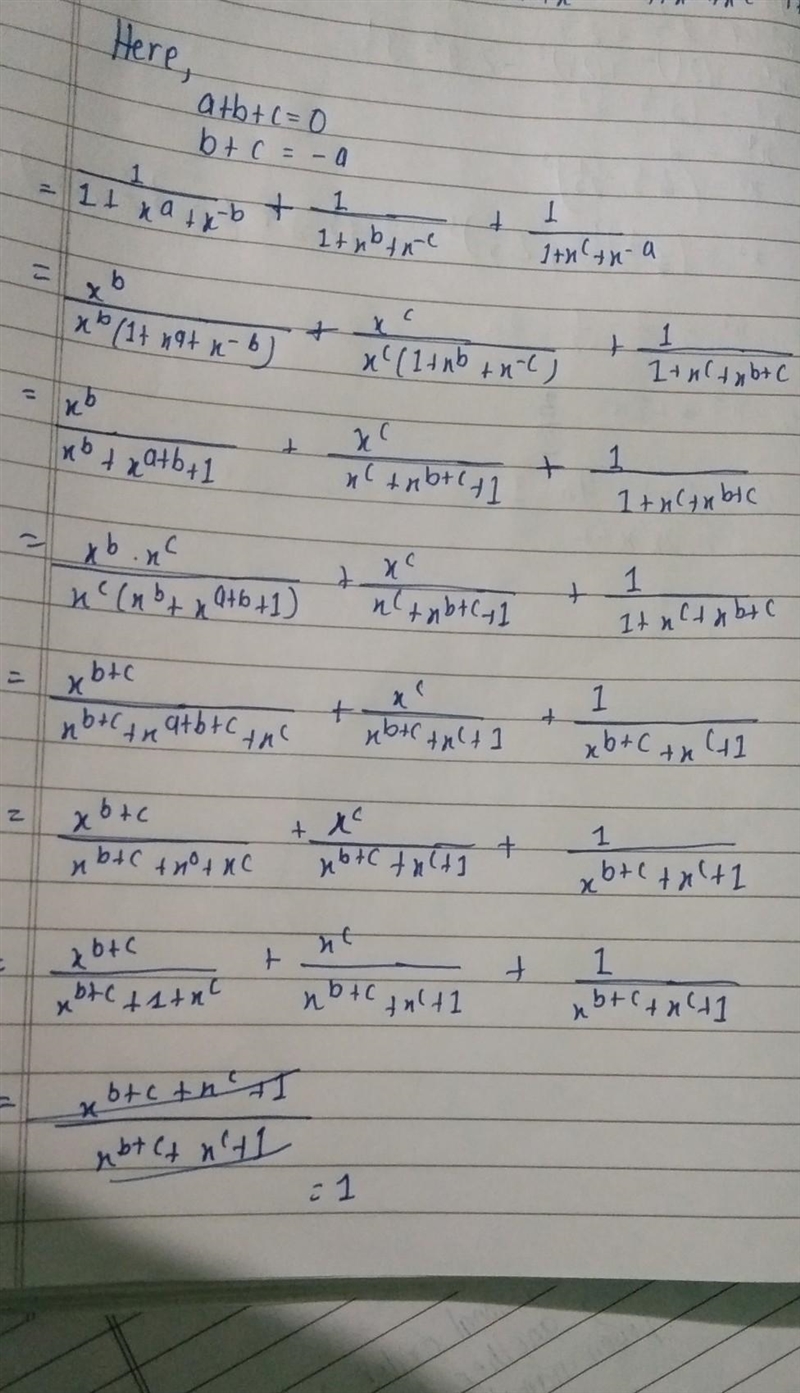 Here,
a+b+c=0
b+c=-a
= 1/(1+x^a+x^-b) + 1/(1+x^b+x^-c) + 1/(1+x^c+x^-a)
= x^b/(x^b(1+x^a+x^-b)) + x^c/(x^c(1+x^b+x^-c)) + 1/(1+x^c+x^b+c)
= x^b/(x^b+x^a+b+1) + x^c/(x^c+x^b+c+1) + 1/(1+x^c+x^b+c)
= x^b.x^c/(x^c(x^b+x^a+b+1)) + x^c/(x^c+x^b+c+1) + 1/(1+x^c+x^b+c)
= x^b+c/(x^b+c+x^a+b+c+x^c) + x^c/(x^b+c+x^c+1) + 1/(x^b+c+x^c+1)
= x^b+c/(x^b+c+x^0+x^c) + x^c/(x^b+c+x^c+1) + 1/(x^b+c+x^c+1)
= x^b+c/(x^b+c+1+x^c) + x^c/(x^b+c+x^c+1) + 1/(x^b+c+x^c+1)
= (x^b+c+x^c+1)/(x^b+c+x^c+1)
= 1